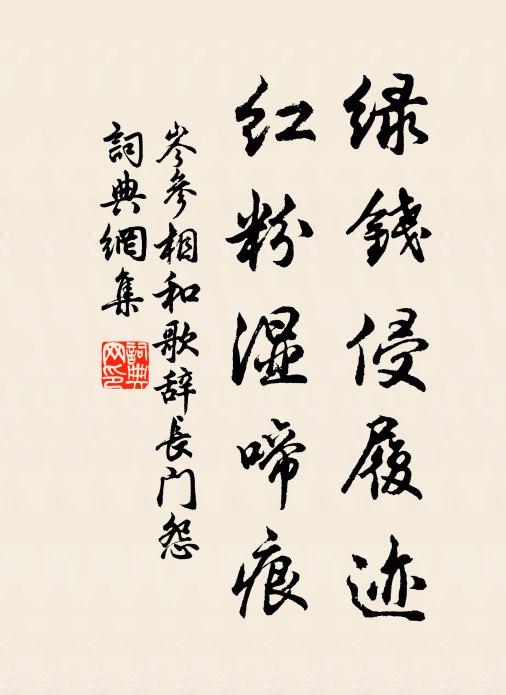 绿錢侵履迹
红粉湿啼痕
岑参相和歌辞長门怨
詞典網集
詞典网印